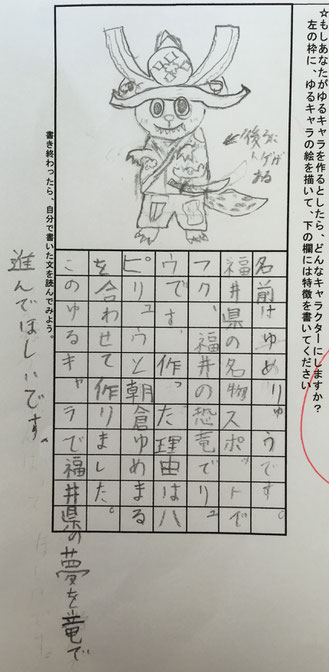 ☆もしあなたがゆるキャラを作るとしたら、どんなキャラクターにしますか？
左の枠に、ゆるキャラの絵を描いて、下の欄には特徴を書いてください
←後ろに
トゲが
ある
名前はゆめりゅうです。
福井県の名物スポットで
フク、福井の恐竜でリュ
ウです。作った理由はハ
ピリュウと朝倉ゆめまる
を合わせて作りました。
このゆるキャラで福井県の夢を竜で
進んでほしいです。
書き終わったら、自分で書いた文を読んでみよう。